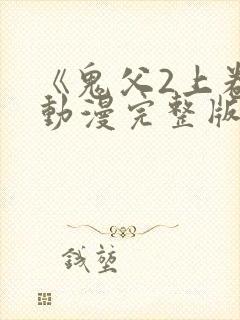 《鬼父2上卷
動漫完整版